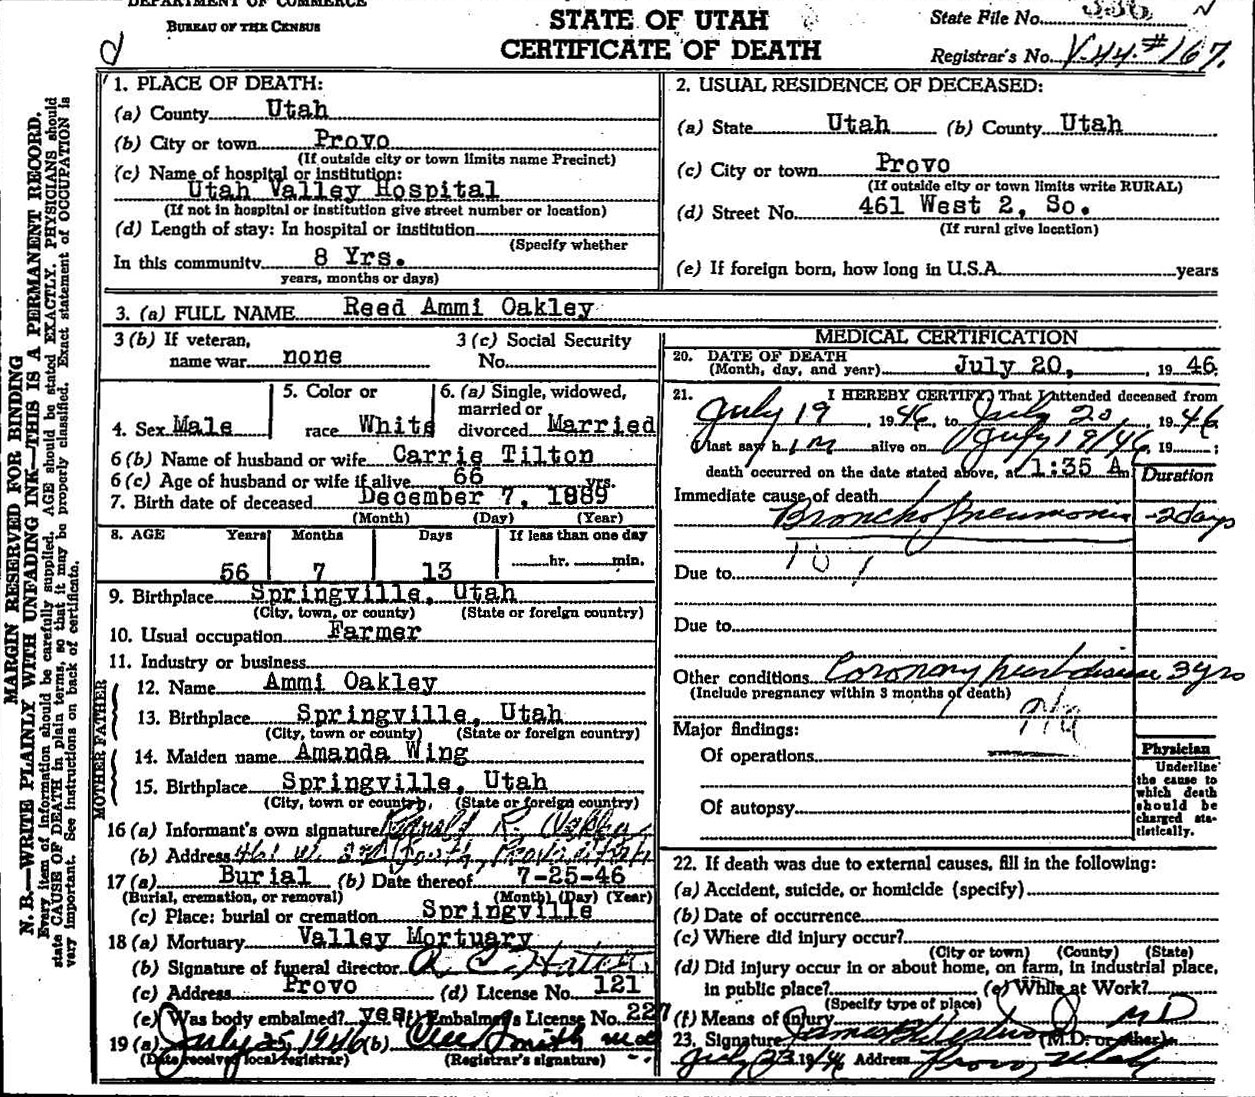 DEPARTMENT OF COMMERCE
BUREAU OF THE CENSUS
STATE OF UTAH
CERTIFICATE OF DEATH
State File No.
Registrar's No. V.44.#167.
MARGIN RESERVED FOR BINDING
N. B.—WRITE PLAINLY WITH UNFADING INK—THIS IS A PERMANENT RECORD.
Every item of information should be carefully supplied. AGE should be stated EXACTLY. PHYSICIANS should
state CAUSE OF DEATH in plain terms, so that it may be properly classified. Exact statement of OCCUPATION is
very important. See instructions on back of certificate.
1. PLACE OF DEATH:
(a) County Utah
(b) City or town Provo
(If outside city or town limits name Precinct)
(c) Name of hospital or institution:
Utah Valley Hospital
(If not in hospital or institution give street number or location)
(d) Length of stay: In hospital or institution
(Specify whether
In this community 8 Yrs.
years, months or days)
2. USUAL RESIDENCE OF DECEASED:
(a) State Utah (b) County Utah
(c) City or town Provo
(If outside city or town limits write RURAL)
(d) Street No. 461 West 2, So.
(If rural give location)
(e) If foreign born, how long in U.S.A. years
3. (a) FULL NAME Reed Ammi Oakley
3 (b) If veteran,
name war none
3 (c) Social Security
No.
4. Sex Male
5. Color or
race White
6. (a) Single, widowed,
married or
divorced Married
6 (b) Name of husband or wife Carrie Tilton
6 (c) Age of husband or wife if alive 66 yrs.
7. Birth date of deceased December 7, 1889
(Month) (Day) (Year)
8. AGE Years Months Days If less than one day
56 7 13 hr. min.
9. Birthplace Springville, Utah
(City, town, or county) (State or foreign country)
10. Usual occupation Farmer
11. Industry or business
FATHER
12. Name Ammi Oakley
13. Birthplace Springville, Utah
(City, town or county) (State or foreign country)
MOTHER
14. Maiden name Amanda Wing
15. Birthplace Springville, Utah
(City, town or county) (State or foreign country)
16 (a) Informant's own signature R. Oakley
(b) Address 461 W. Provo, Utah
17 (a) Burial (b) Date thereof 7-25-46
(Burial, cremation, or removal) (Month) (Day) (Year)
(c) Place: burial or cremation Springville
18 (a) Mortuary Valley Mortuary
(b) Signature of funeral director
(c) Address Provo (d) License No. 121
(e) Was body embalmed? yes (f) Embalmer's License No. 227
19 (a) July 25, 1946 (b) Smith
(Date received local registrar) (Registrar's signature)
MEDICAL CERTIFICATION
20. DATE OF DEATH
(Month, day, and year) July 20, , 19 46
21. I HEREBY CERTIFY, That I attended deceased from
July 19 , 19 46, to July 20 , 19 46
I last saw h im alive on July 19/46, 19 ;
death occurred on the date stated above, at 1:35 A m
Duration
Immediate cause of death
Bronchopneumonia -2days
107
Due to
Due to
Other conditions Coronary heart disease 3 yrs
(Include pregnancy within 3 months of death)
Major findings:
Of operations
Of autopsy
Physician
Underline
the cause to
which death
should be
charged sta-
tistically.
22. If death was due to external causes, fill in the following:
(a) Accident, suicide, or homicide (specify)
(b) Date of occurrence
(c) Where did injury occur?
(City or town) (County) (State)
(d) Did injury occur in or about home, on farm, in industrial place,
in public place? (e) While at Work?
(Specify type of place)
(f) Means of Injury
23. Signature M D
(M.D. or other)
July 23 1946 Address Provo Utah